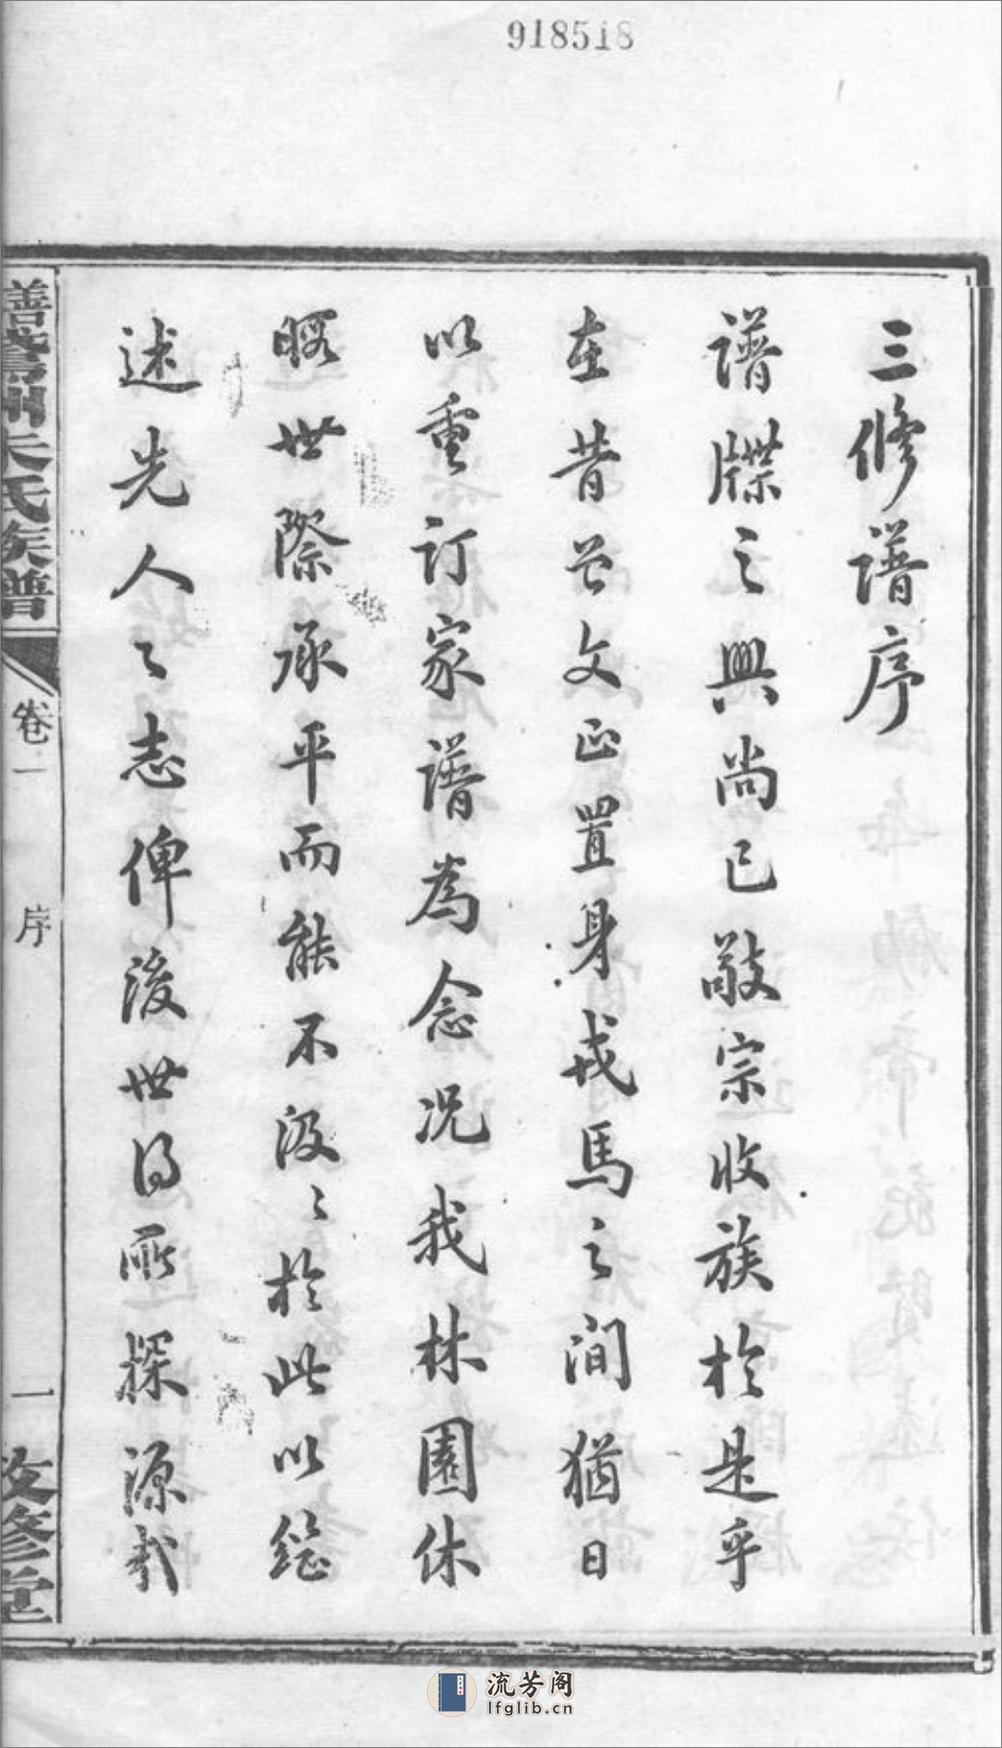 918518
三修譜序
譜牒之興尚已敬宗收族於是乎
在昔曾文正置身戎馬之間猶日
以重訂家譜為念況我林園休
暇世際承平而能不汲〻於此以繼
述先人之志俾後世得所探源哉
氏族譜
卷一
序
一
敦修堂
流芳阁
lfglib.cn